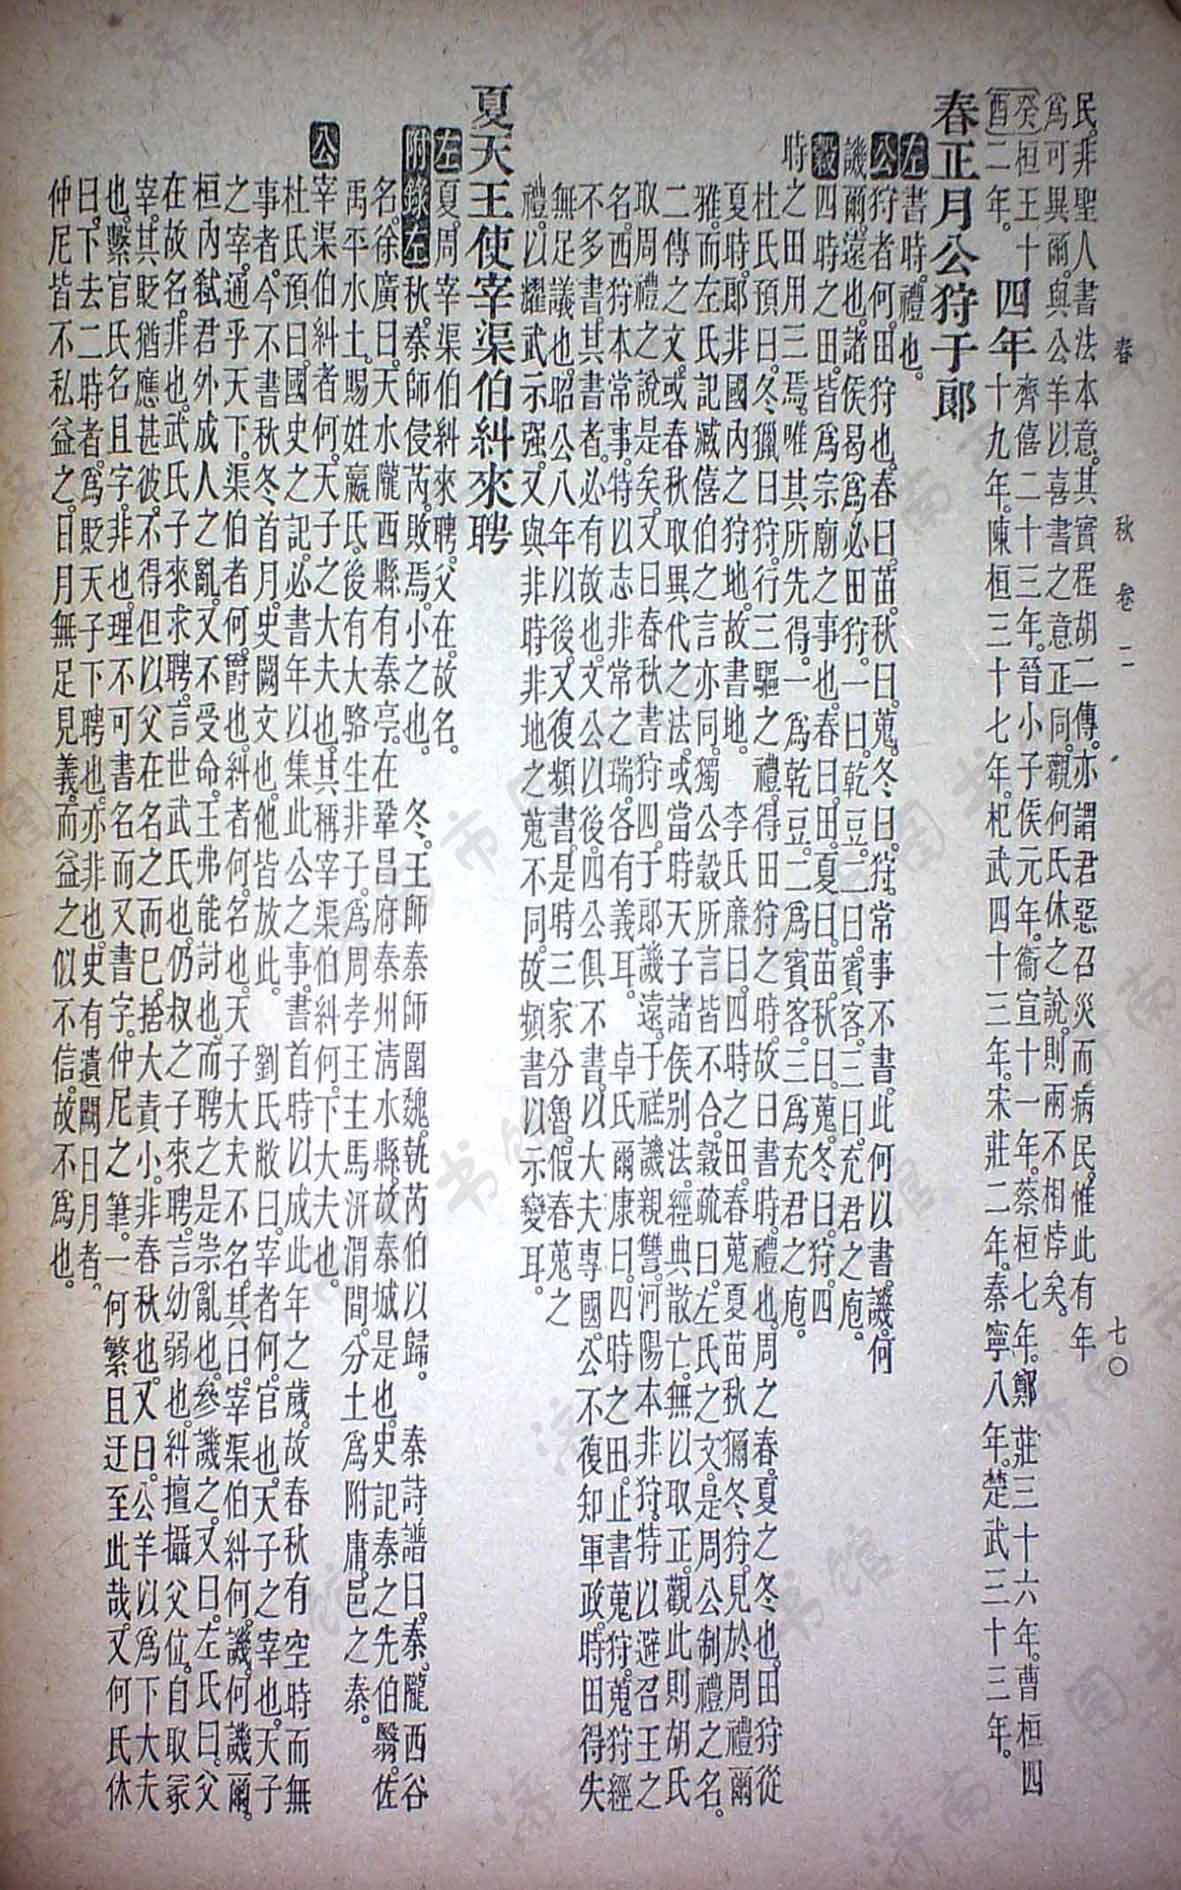 春 秋 卷二 七〇
民。非聖人書法本意。其實程胡二傳。亦謂君惡召災而病民。惟此有年
爲可異爾。與公羊以喜書之意正同。觀何氏休之說。則兩不相悖矣。
癸酉 桓王十二年。 四年 齊僖二十三年。晉小子侯元年。衞宣十一年。蔡桓七年。鄭莊三十六年。曹桓四十九年。陳桓三十七年。杞武四十三年。宋莊二年。秦寧八年。楚武三十三年。
春正月公狩于郎
左 書時。禮也。
公 狩者何。田狩也。春曰苗。秋曰蒐。冬曰狩。常事不書。此何以書。譏。何
譏爾。遠也。諸侯曷爲必田狩。一曰乾豆。二曰賓客。三曰充君之庖。
穀 四時之田。皆爲宗廟之事也。春曰田。夏曰苗。秋曰蒐。冬曰狩。四
時之田用三焉。唯其所先得。一爲乾豆。二爲賓客。三爲充君之庖。
杜氏預曰。冬獵曰狩。行三驅之禮。得田狩之時。故曰書時。禮也。周之春。夏之冬也。田狩從
夏時。郎非國內之狩地。故書地。 李氏廉曰。四時之田。春蒐夏苗秋獮冬狩。見於周禮爾
雅。而左氏記臧僖伯之言亦同。獨公穀所言皆不合。穀疏曰。左氏之文。是周公制禮之名。
二傳之文。或春秋取異代之法。或當時天子諸侯別法。經典散亡。無以取正。觀此則胡氏
取周禮之說是矣。又曰春秋書狩四。于郎譏遠。于禚譏親讐。河陽本非狩。特以避召王之
名。西狩本常事。特以志非常之瑞。各有義耳。 卓氏爾康曰。四時之田。止書蒐狩。蒐狩經
不多書。其書者。必有故也。文公以後。四公俱不書。以大夫專國。公不復知軍政。時田得失
無足議也。昭公八年以後。又復頻書。是時三家分魯。假春蒐之
禮。以耀武示强。又與非時非地之蒐不同。故頻書以示變耳。
夏天王使宰渠伯糾來聘
左 夏。周宰渠伯糾來聘。父在。故名。
附錄左 秋。秦師侵芮。敗焉。小之也。 冬。王師秦師圍魏。執芮伯以歸。 秦詩譜曰。秦。隴西谷
名。徐廣曰。天水隴西縣有秦亭。在鞏昌府秦州淸水縣。故秦城是也。史記秦之先伯翳。佐
禹平水土。賜姓嬴氏。後有大駱生非子。爲周孝王主馬汧渭間。分土爲附庸。邑之秦。
公 宰渠伯糾者何。天子之大夫也。其稱宰渠伯糾何。下大夫也。
杜氏預曰。國史之記。必書年以集此公之事。書首時以成此年之歲。故春秋有空時而無
事者。今不書秋冬首月。史闕文也。他皆放此。 劉氏敞曰。宰者何。官也。天子之宰也。天子
之宰。通乎天下。渠伯者何。爵也。糾者何。名也。天子大夫不名。其曰宰渠伯糾何。譏。何譏爾。
桓內弒君外成人之亂。又不受命。王弗能討也。而聘之是崇亂也。參譏之。又曰。左氏曰。父
在故名。非也。武氏子來求聘。言世武氏也。仍叔之子來聘。言幼弱也。糾擅攝父位。自取冢
宰。其貶猶應甚彼。不得但以父在名之而巳。捨大責小。非春秋也。又曰。公羊以爲下大夫
也。繫官氏名且字。非也。理不可書名而又書字。仲尼之筆。一何繁且迂至此哉。又何氏休
曰。下去二時者。爲貶天子下聘也。亦非也。史有遺闕日月者。
仲尼皆不私益之。日月無足見義。而益之似不信。故不爲也。